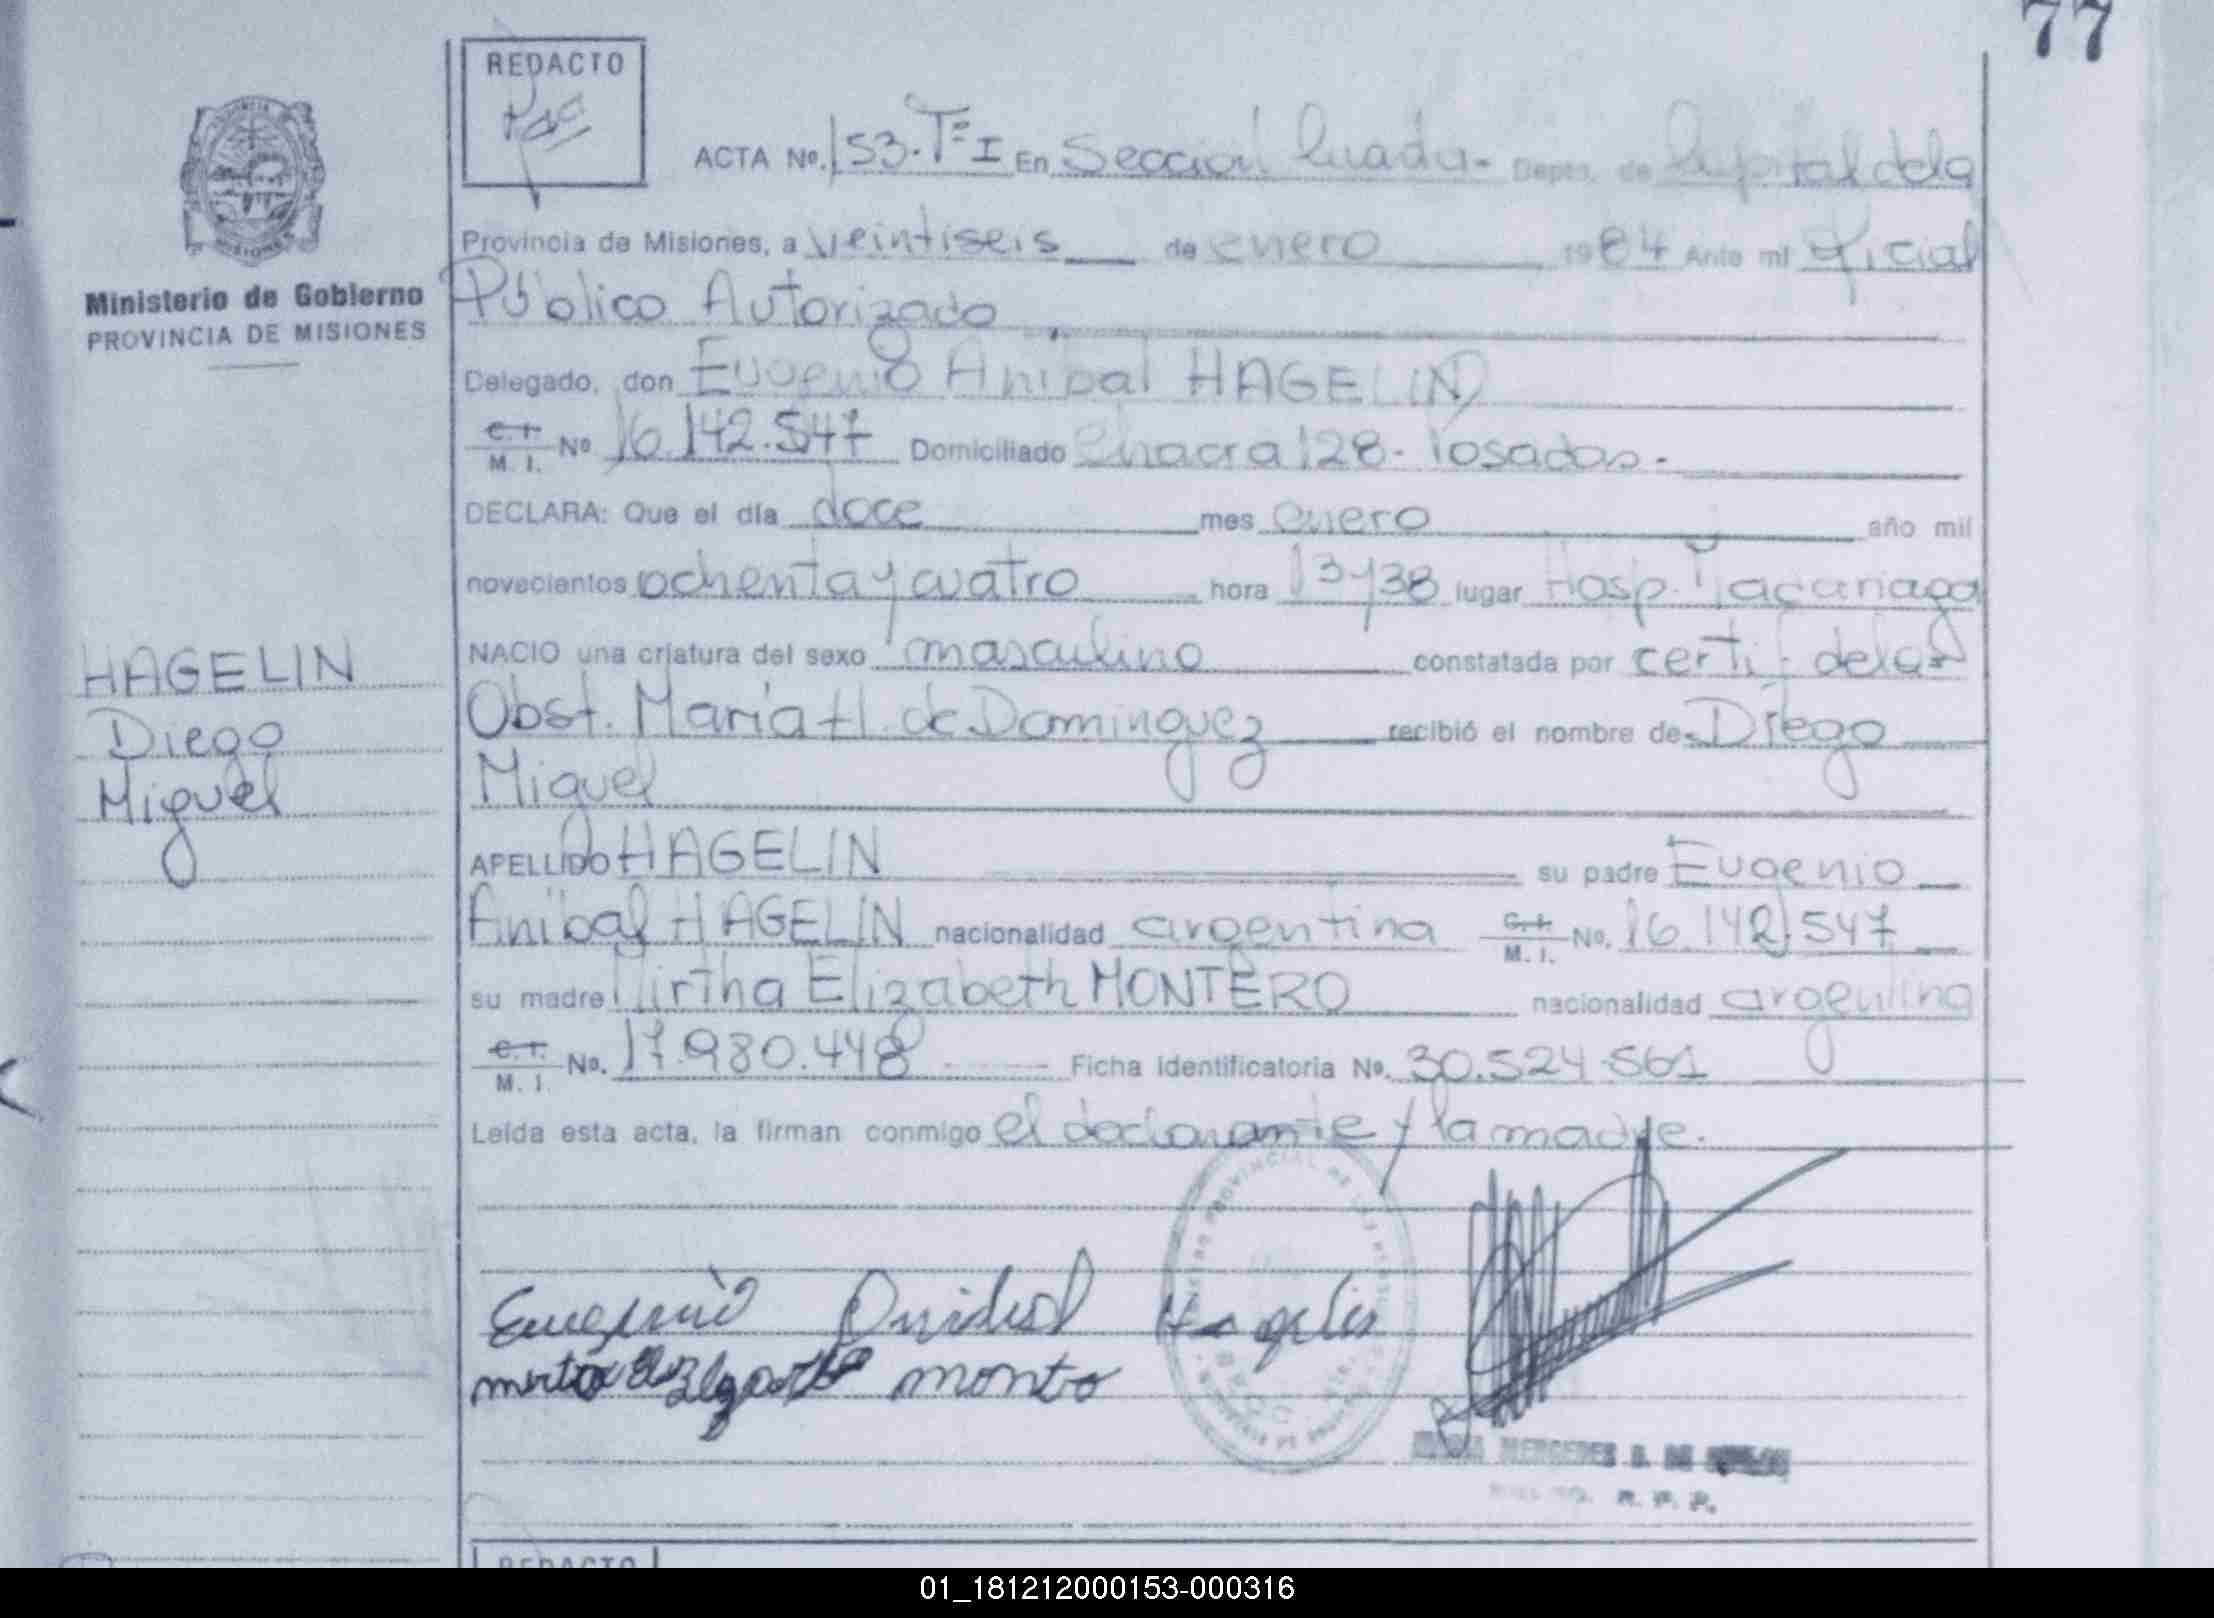 77
REDACTO
ACTA Nº. 153. Tº I En Seccional Cuarta - Depto. de Capital de la
Provincia de Misiones, a veintiseis de enero 1984 Ante mí Oficial
Público Autorizado
Ministerio de Gobierno
PROVINCIA DE MISIONES
Delegado, don Eugenio Anibal HAGELIN
C. I. M. I. Nº 16.142.547 Domiciliado Chacra 128 - Posadas.
DECLARA: Que el día doce mes enero año mil
novecientos ochenta y cuatro hora 13y38 lugar Hosp. Madariaga
NACIO una criatura del sexo masculino constatada por certif. de la
Obst. María H. de Dominguez recibió el nombre de Diego
Miguel
HAGELIN
Diego
Miguel
APELLIDO HAGELIN su padre Eugenio
Anibal HAGELIN nacionalidad argentina C. I. M. I. No. 16.142.547
su madre Mirtha Elizabeth MONTERO nacionalidad argentina
C. I. M. I. No. 17.980.448 Ficha Identificatoria Nº. 30.524.561
Leída esta acta, la firman conmigo el declarante y la madre.
Eugenio Anibal Hagelin
MERCEDES
R. P. P.
REDACTO
01_181212000153-000316